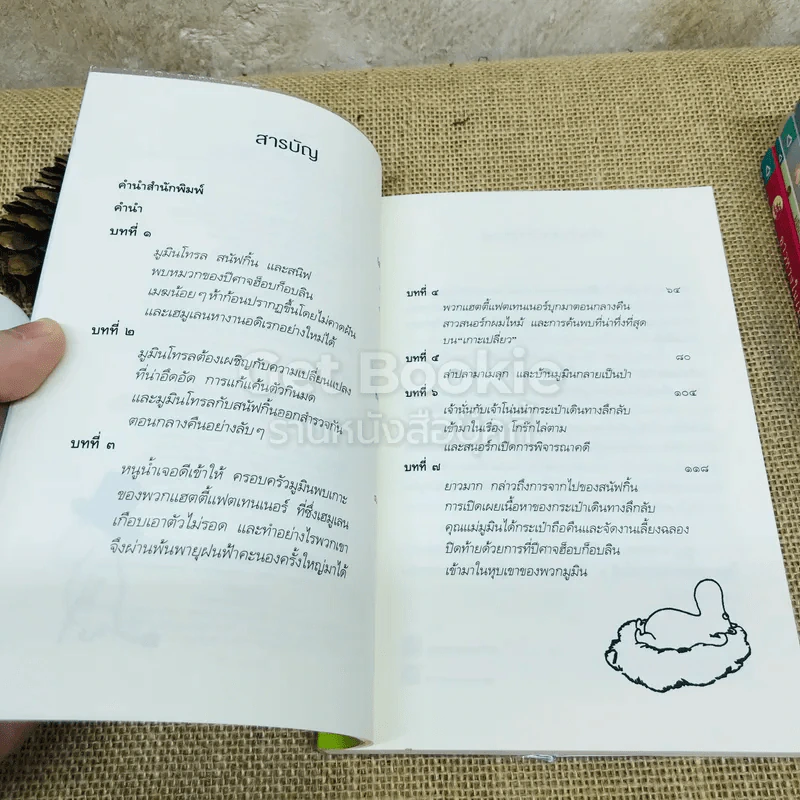 สารบัญ
คำนำสำนักพิมพ์
คำนำ
บทที่ ๑
มูมินโทรล สนัฟกิ้น และสนิฟ
พบหมวกของปีศาจฮ็อบก็อบลิน
เมฆน้อยๆ ห้าก้อนปรากฏขึ้นโดยไม่คาดฝัน
และเฮมูเลนหางานอดิเรกอย่างใหม่ได้
บทที่ ๒
มูมินโทรลต้องเผชิญกับความเปลี่ยนแปลง
ที่น่าอึดอัด การแก้แค้นตัวกินมด
และมูมินโทรลกับสนัฟกิ้นออกสำรวจกัน
ตอนกลางคืนอย่างลับๆ
บทที่ ๓
หนูน้ำเจอดีเข้าให้ ครอบครัวมูมินพบเกาะ
ของพวกแฮตตี้แฟตเทนเนอร์ ที่ซึ่งเฮมูเลน
เกือบเอาตัวไม่รอด และทำอย่างไรพวกเขา
จึงผ่านพ้นพายุฝนฟ้าคะนองครั้งใหญ่มาได้
บทที่ ๔ ๖๔
พวกแฮตตี้แฟตเทนเนอร์บุกมาตอนกลางคืน
สาวสนอร์กผมไหม้ และการค้นพบที่น่าทึ่งที่สุด
บน“เกาะเปลี่ยว”
บทที่ ๕ ๘๐
ล่าปลามาเมลุก และบ้านมูมินกลายเป็นป่า
บทที่ ๖ ๑๐๔
เจ้านั่นกับเจ้าโน่นนำกระเป๋าเดินทางลึกลับ
เข้ามาในเรื่อง โกร๊กไล่ตาม
และสนอร์กเปิดการพิจารณาคดี
บทที่ ๗ ๑๑๘
ยาวมาก กล่าวถึงการจากไปของสนัฟกิ้น
การเปิดเผยเนื้อหาของกระเป๋าเดินทางลึกลับ
คุณแม่มูมินได้กระเป๋าถือคืนและจัดงานเลี้ยงฉลอง
ปิดท้ายด้วยการที่ปีศาจฮ็อบก็อบลิน
เข้ามาในหุบเขาของพวกมูมิน
Get Bookie